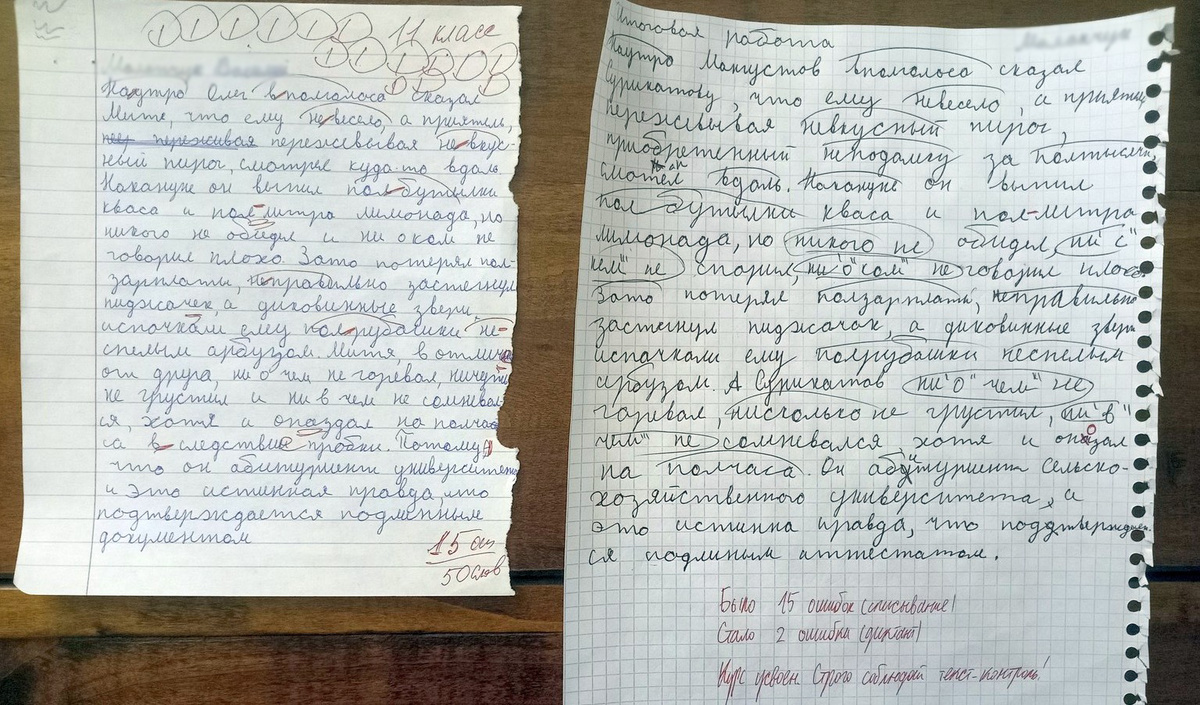 11 класс
Наутро Олег вполголоса сказал
Мите, что ему невесело, а приятель,
переживая пережёвывая невкус-
ный пирог, смотрел куда-то вдаль.
Накануне он выпил пол бутылки
кваса и пол-литра лимонада, но
никого не обидел и ни о ком не
говорил плохо. Зато потерял пол-
зарплаты, неправильно застегнул
пиджачек, а диковинные звери
испачкали ему пол рубашки не-
спелым арбузом. Митя, в отличи
от друга, ни о чем не горевал, ничуть
не грустил и ни в чем не сомневал-
ся, хотя и опаздал на полчас
са в следствие пробки. Потому
что он абитуриент университета
и это истинная правда, что
подтверждается подлинным
документом
15 ош
50 слов
Итоговая работа
Наутро Мангустов вполголоса сказал
Сурикатову, что ему невесело, а приятель
пережёвывая невкусный пирог,
приобретенный неподалёку за полтысячи,
смотрел вдаль. Накануне он выпил
пол бутылки кваса и пол-литра
лимонада, но никого не обидел, ни с
кем не спорил, ни о ком не говорил плохо.
Зато потерял ползарплаты, неправильно
застегнул пиджачок, а диковинные звери
испачкали ему полрубашки неспелым
арбузом. А Сурикатов ни о чем не
горевал, нисколько не грустил, ни в
чем не сомневался, хотя и опаздал
на полчаса. Он абитуриент сельско-
хозяйственного университета, и
это истинна правда, что поддтверждает
ся подлиным аттестатом.
Было 15 ошибок (списывание)
Стало 2 ошибки (диктант)
Курс усвоен. Строго соблюдай текст-контроль!